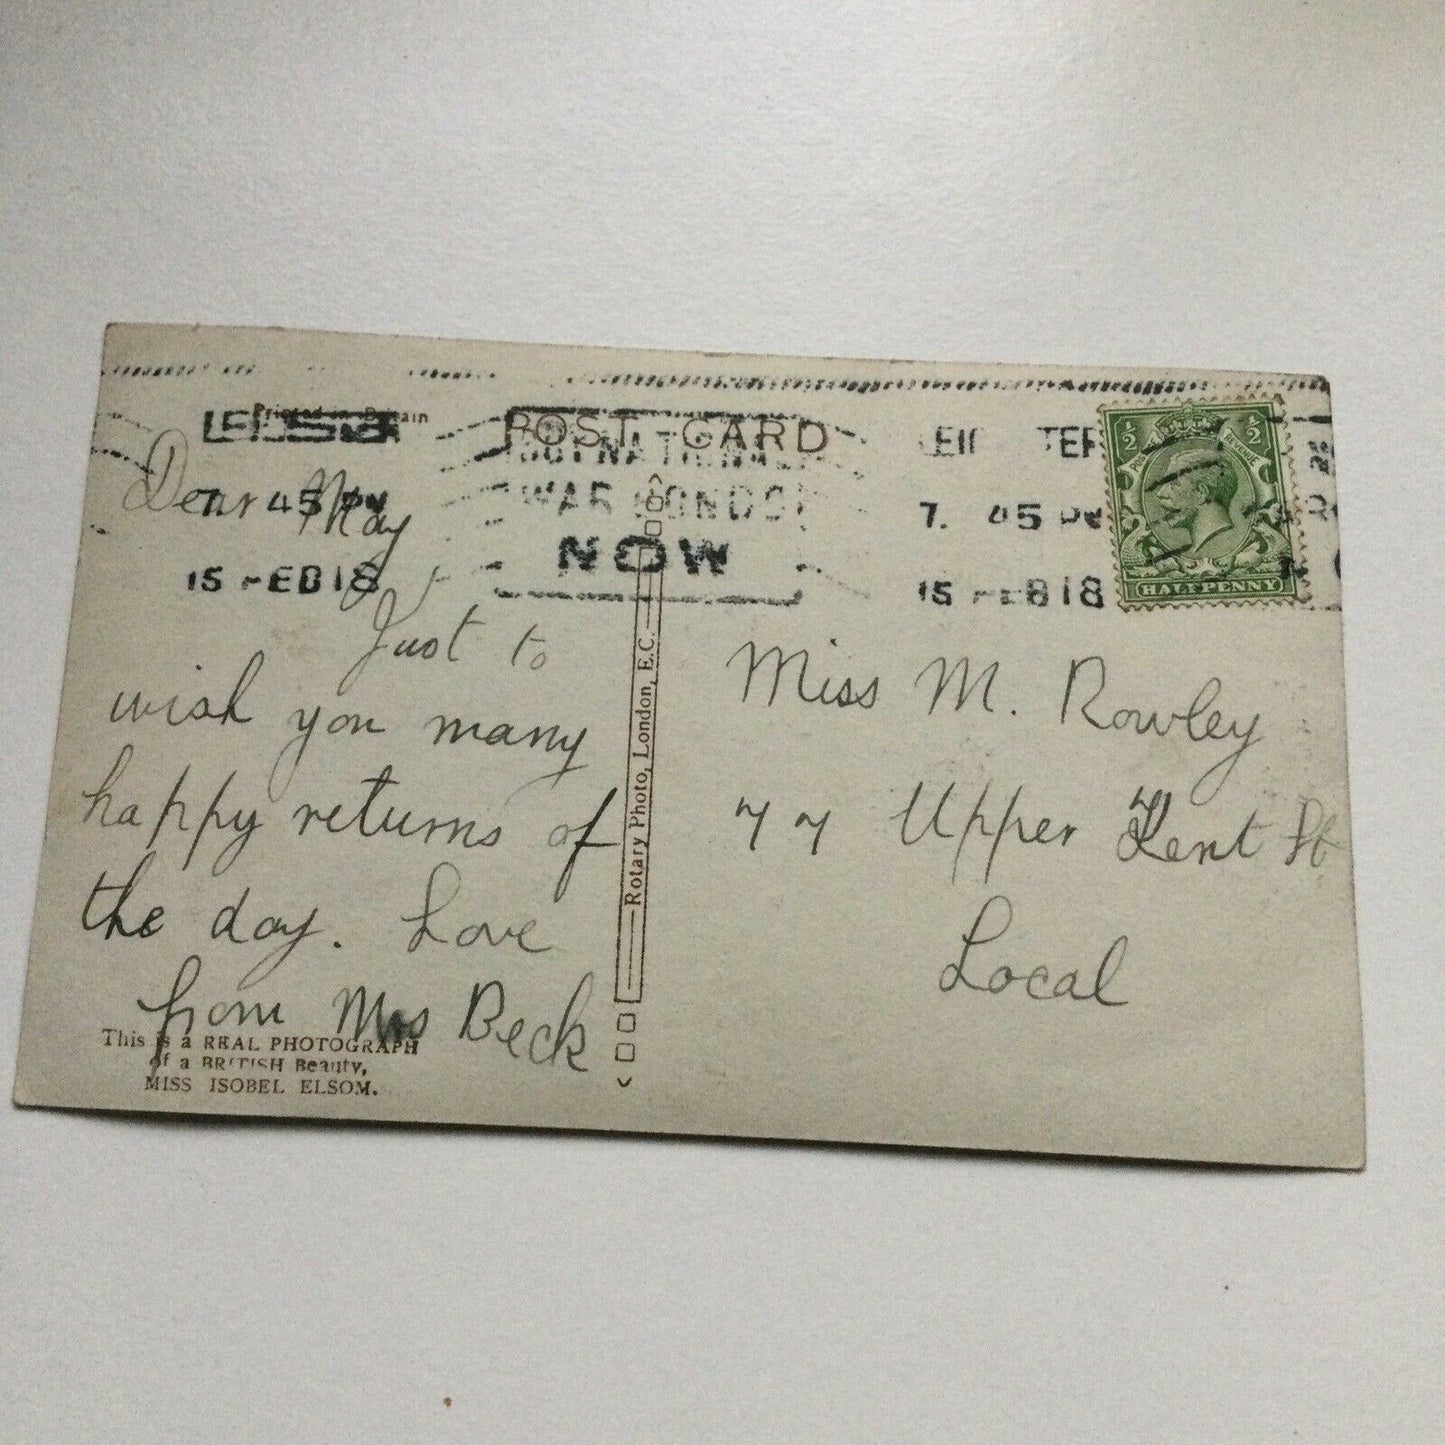 Printed in Britain
POST CARD
NATIONAL
WAR BONDS
NOW
7. 45 PM
15 FEB 18
7. 45 PM
15 FEB 18
½ ½
HALFPENNY
Dear May
Just to
wish you many
happy returns of
the day. Love
from Mrs Beck
This is a REAL PHOTOGRAPH
of a BRITISH Beauty,
MISS ISOBEL ELSOM.
Rotary Photo, London, E.C.
Miss M. Rowley
77 Upper Kent St
Local